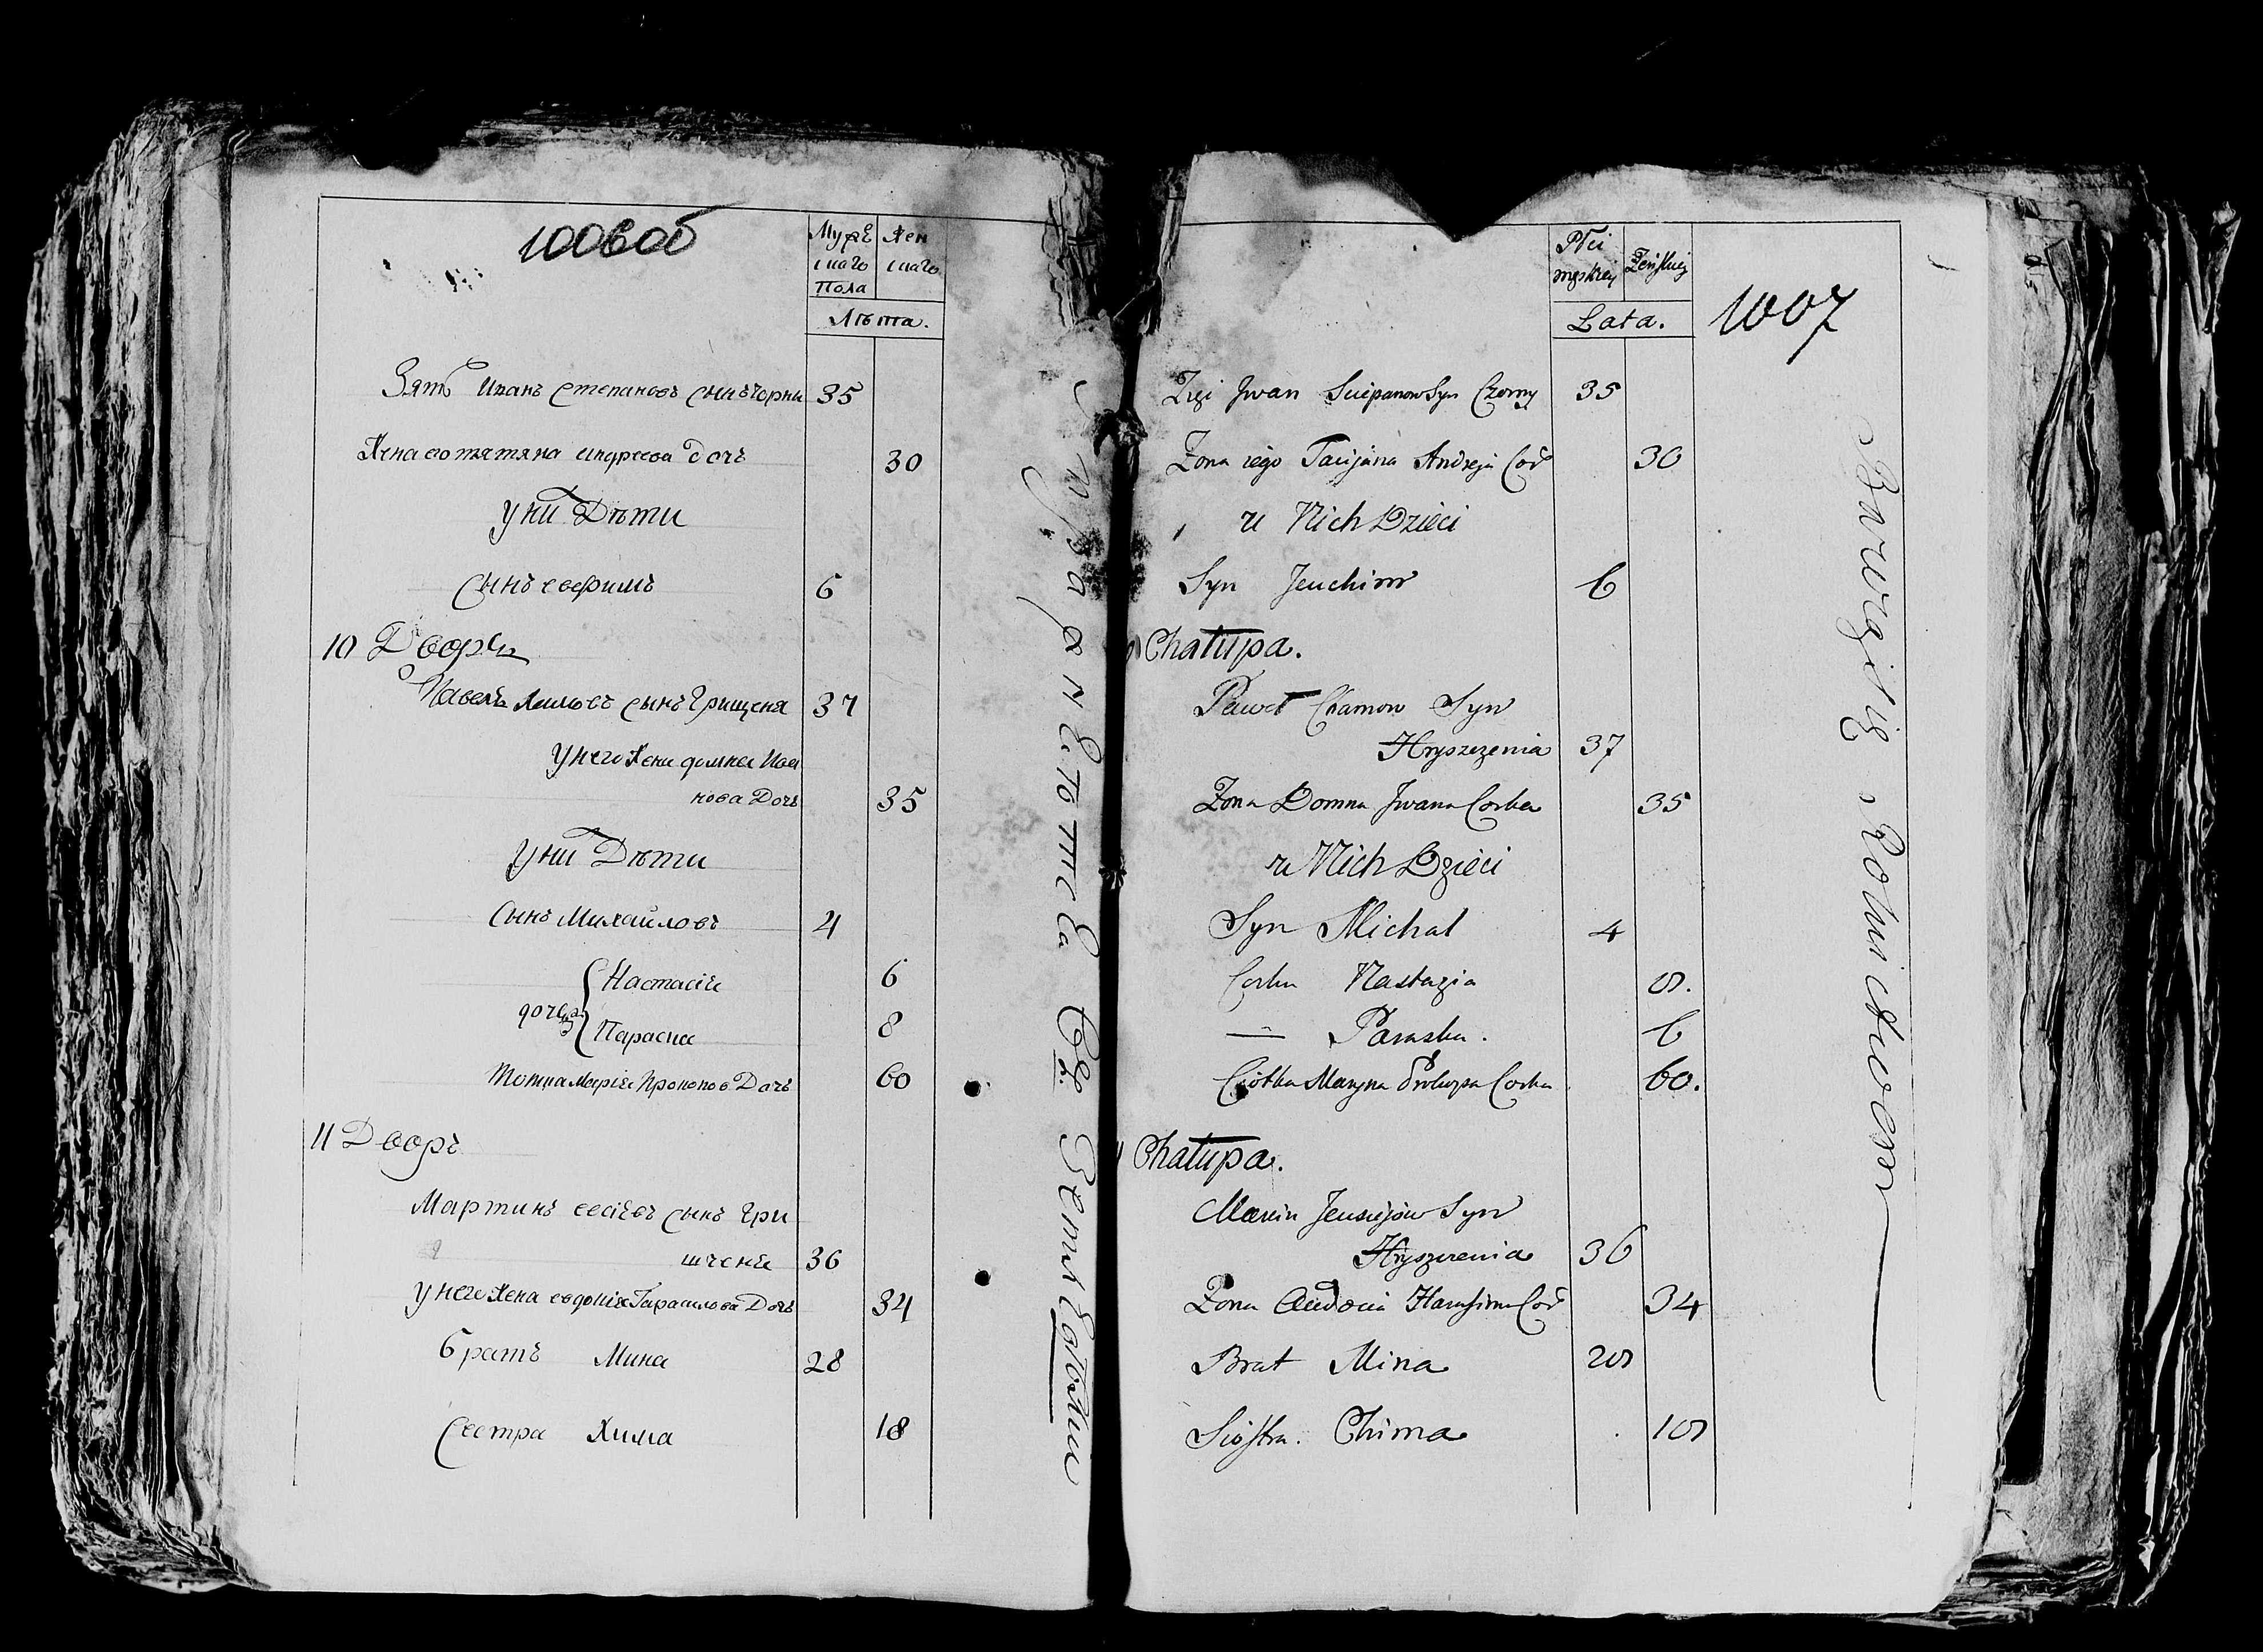 1006об
Мужескаго Пола
Женскаго
Лѣта.
Зять Иванъ Степановъ сынъ Чорни 35
Жена его Татяна Андреева Дочъ 30
у ни Дѣти
Сынъ Евфимъ 6
10 Дворъ
Павелъ Хамовъ сынъ Грищеня 37
У него Жена Домна Ива
нова Дочъ 35
у ни Дѣти
Сынъ Михайловъ 4
Настасія 6
дочери
Параска 8
Тотка Марія Прокопов Дочъ 60
11 Дворъ
Мартинъ Евсіевъ сынъ Гри
щеня 36
У него Жена Евдокія Гарасимова Дочъ 34
Братъ Мина 28
Сестра Хима 18
Płci męskiey
Żeńskiey
Lata.
1007
Zięć Jwan Sciepanow Syn Czorny 35
Zona iego Tacijana Andreja Cor 30
u Nich Dzieci
Syn Jeuchim 6
Chałupa.
Paweł Chamow Syn
Hryszczenia 37
Zona Domna Jwana Corka 35
u Nich Dzieci
Syn Michał 4
Corka Nastazia 8.
— Paraska. 6
Ciotka Maryna Prokopa Corka 60.
11 Chałupa.
Marcin Jeusiejow Syn
Hryszczenia 36
Zona Audocia Harasima Cor 34
Brat Mina 28
Siostra. Chima 18